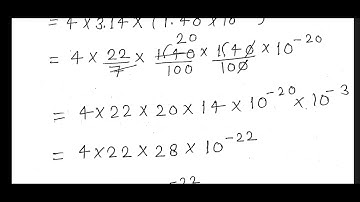 = 4 × 3.14 × (1.40 × 10
20
= 4 × 22/7 × 140/100 × 140/100 × 10^-20
= 4 × 22 × 20 × 14 × 10^-20 × 10^-3
= 4 × 22 × 28 × 10^-22
-22